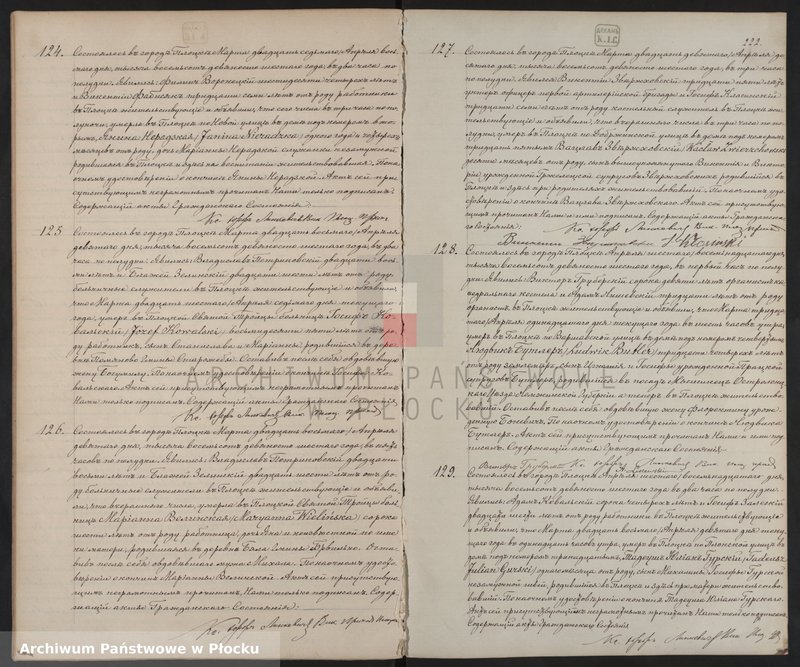 222.
124. Состоялось въ городѣ Плоцкѣ Марта двадцать седьмаго /Апрѣля вось
маго/ дня, тысяча восемьсотъ девяносто шестаго года, въ два часа по
полудни. Явились: Филипп Воронецкій шестидесяти четырехъ лѣтъ
и Викентій тридцати семи лѣтъ отъ роду работники
въ Плоцкѣ жительствующіе и объявили, что сего числа въ три часа по по
луночи, умерла въ Плоцкѣ по Новой улицѣ въ домѣ подъ номеромъ
Янина Нерадзкая /Janina Nieradzka/ одного года и
мѣсяцевъ отъ роду, дочь Маріанны Нерадзкой служанки незамужней
родившаяся въ Плоцкѣ и здѣсь на воспитаніи жительствовавшая. По на
очномъ удостовѣреніи о кончинѣ Янины Нерадзкой. Актъ сей при
сутствующимъ неграмотнымъ прочитанъ Нами только подписанъ.
Содержащій акты Гражданскаго Состоянія:
125. Состоялось въ городѣ Плоцкѣ Марта двадцать восьмаго /Апрѣля
девятаго/ дня, тысяча восемьсотъ девяносто шестаго года, въ два
часа по полудни. Явились: Владиславъ Петриковскій двадцати вось
ми лѣтъ и Блажей Зелинскій двадцати шести лѣтъ отъ роду
больничные служители въ Плоцкѣ жительствующіе и объявили,
что Марта двадцать шестаго /Апрѣля седьмаго/ дня текущаго
года, умеръ въ Плоцкой Святой Тройцы больницѣ Іосифъ Ко
вальскій /Józef Kowalski/ восьмидесяти пяти лѣтъ отъ ро
ду работникъ, сынъ Станислава и Маріанны родившійся въ дерев
нѣ
жену Богумилу. По наочномъ удостовѣреніи о кончинѣ Іосифа Ко
вальскаго. Актъ сей присутствующимъ неграмотнымъ прочитанъ
Нами только подписанъ. Содержащій акты Гражданскаго Состоянія
126. Состоялось въ городѣ Плоцкѣ Марта двадцать восьмаго /Апрѣля
девятаго/ дня, тысяча восемьсотъ девяносто шестаго года, въ два
часа по полудни. Явились: Владиславъ Петриковскій двадцати
восьми лѣтъ и Блажей Зелинскій двадцати шести лѣтъ отъ ро
ду больничные служители въ Плоцкѣ жительствующіе и объяви
ли, что вчерашняго числа, умерла въ Плоцкой Святой Тройцы боль
ницѣ Маріанна Велинская /Maryanna Wielińska/ сорока
шести лѣтъ отъ роду работница, дочь Яна и неизвѣстной по име
ни матери, родившаяся въ деревнѣ
вивъ послѣ себя овдовѣвшаго мужа Михала. По наочномъ удосто
вѣреніи о кончинѣ Маріанны Велинской. Актъ сей присутствую
щимъ неграмотнымъ прочитанъ, Нами только подписанъ. Содер
жащій акты Гражданскаго Состоянія:
127. Состоялось въ городѣ Плоцкѣ Марта двадцать девятаго /Апрѣля де
сятаго/ дня, тысяча восемьсотъ девяносто шестаго года, въ три часа
по полудни. Явились: Викентій Звержховскій тридцати пяти лѣтъ
унтеръ офицеръ первой артиллерійской бригады и Іосифъ
тридцати семи лѣтъ отъ роду костельный служитель въ Плоцкѣ жи
тельствующіе и объявили, что вчерашняго числа въ три часа по по
лудни, умеръ въ Плоцкѣ по улицѣ въ домѣ подъ номеромъ
тридцать пятымъ Вацлавъ Звержховскій /Wacław Zwierzchowski/
десяти мѣсяцевъ отъ роду, сынъ вышеупомянутаго Викентія и
урожденной Гржелецкой супруговъ Звержховскихъ родившійся въ
Плоцкѣ и здѣсь при родителяхъ жительствовавшій. По наочномъ удо
стовѣреніи о кончинѣ Вацлава Звержховскаго. Актъ сей присутствую
щимъ прочитанъ Нами и ими подписанъ. Содержащій акты Гражданска
го Состоянія:
128. Состоялось въ городѣ Плоцкѣ Апрѣля шестаго /восемнадцатаго/ дня,
тысяча восемьсотъ девяносто шестаго года, въ первый часъ по полу
дни. Явились: Викторъ Грудзскій сорока девяти лѣтъ органистъ ка
ѳедральнаго костела и Адамъ тридцати лѣтъ отъ роду
органистъ, въ Плоцкѣ жительствующіе и объявили, что Марта тридца
таго /Апрѣля одинадцатаго/ дня текущаго года въ шесть часовъ утра,
умеръ въ Плоцкѣ по Варшавской улицѣ въ домѣ подъ номеромъ четвертымъ
Людвикъ Бутлеръ /Ludwik Butler/ тридцати четырехъ лѣтъ
отъ роду землемѣръ, сынъ Игнатія и Іосифы урожденной Врацкой
супруговъ Бутлеръ родившійся въ посадѣ Остроленц
каго уѣзда Ломжинской Губерніи а теперь въ Плоцкѣ жительство
вавшій. Оставивъ послѣ себя овдовѣвшую жену Флорентину урож
денную По наочномъ удостовѣреніи о кончинѣ Людвика
Бутлера. Актъ сей присутствующимъ прочитанъ Нами и ими под
писанъ. Содержащій акты Гражданскаго Состоянія:
129. Состоялось въ городѣ Плоцкѣ Апрѣля шестаго /восемнадцатаго/ дня,
тысяча восемьсотъ девяносто шестаго года въ два часа по полудни.
Явились: Адамъ Ковальскій сорока четырехъ лѣтъ и Іосифъ Залескій
двадцати шести лѣтъ отъ роду работники въ Плоцкѣ жительствующіе
и объявили, что Марта двадцать восьмаго /Апрѣля девятаго/ дня теку
щаго года въ одинадцать часовъ утра, умеръ въ Плоцкѣ по Плонской улицѣ въ
домѣ подъ номеромъ тринадцатымъ, Тадеушъ Юліанъ Гурскій /Tadeusz
Julian Gurski/ одного мѣсяца отъ роду, сынъ Іосифы Гурской
незамужней швеи, родившійся въ Плоцкѣ и здѣсь при матери жительство
вавшій. По наочномъ удостовѣреніи о кончинѣ Тадеуша Юліана Гурскаго.
Актъ сей присутствующимъ неграмотнымъ прочитанъ Нами только подписанъ.
Содержащій акты Гражданскаго Состоянія
ARCHIWUM PAŃSTWOWE
W PŁOCKU
Archiwum Państwowe w Płocku